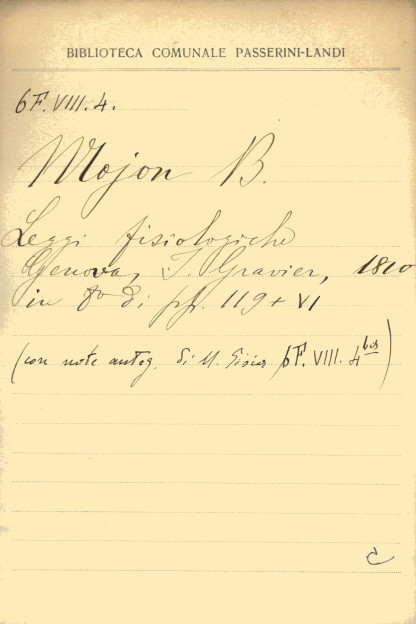 BIBLIOTECA COMUNALE PASSERINI-LANDI
6F. VIII. 4.
Mojon B.
Leggi fisiologiche
Genova, I. Gravier, 1810
in 8º di pp. 119 + VI
(con note autog. di M. Gioia 6F. VIII. 4 bis)
C